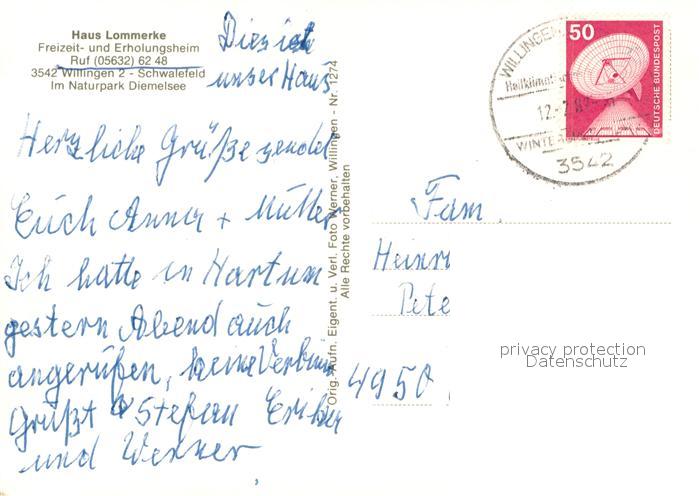 Haus Lommerke
Freizeit- und Erholungsheim
Ruf (05632) 62 48
3542 Willingen 2 - Schwalefeld
Im Naturpark Diemelsee
Dies ist
unser Haus
Herzliche Grüße sendet
Euch Anna + Mutter
Ich hatte in Hartum
gestern Abend auch
angerufen, keine Verbin
Grüßt Stefan
und Werner
Orig.-Aufn. Eigent. u. Verl. Foto Werner, Willingen - Nr. 1274
Alle Rechte vorbehalten
WILLINGEN
Heilklimatischer
12.-2.8
WINTER
3542
50
DEUTSCHE BUNDESPOST
Fam.
Heinri
Pete
4950
privacy protection
Datenschutz